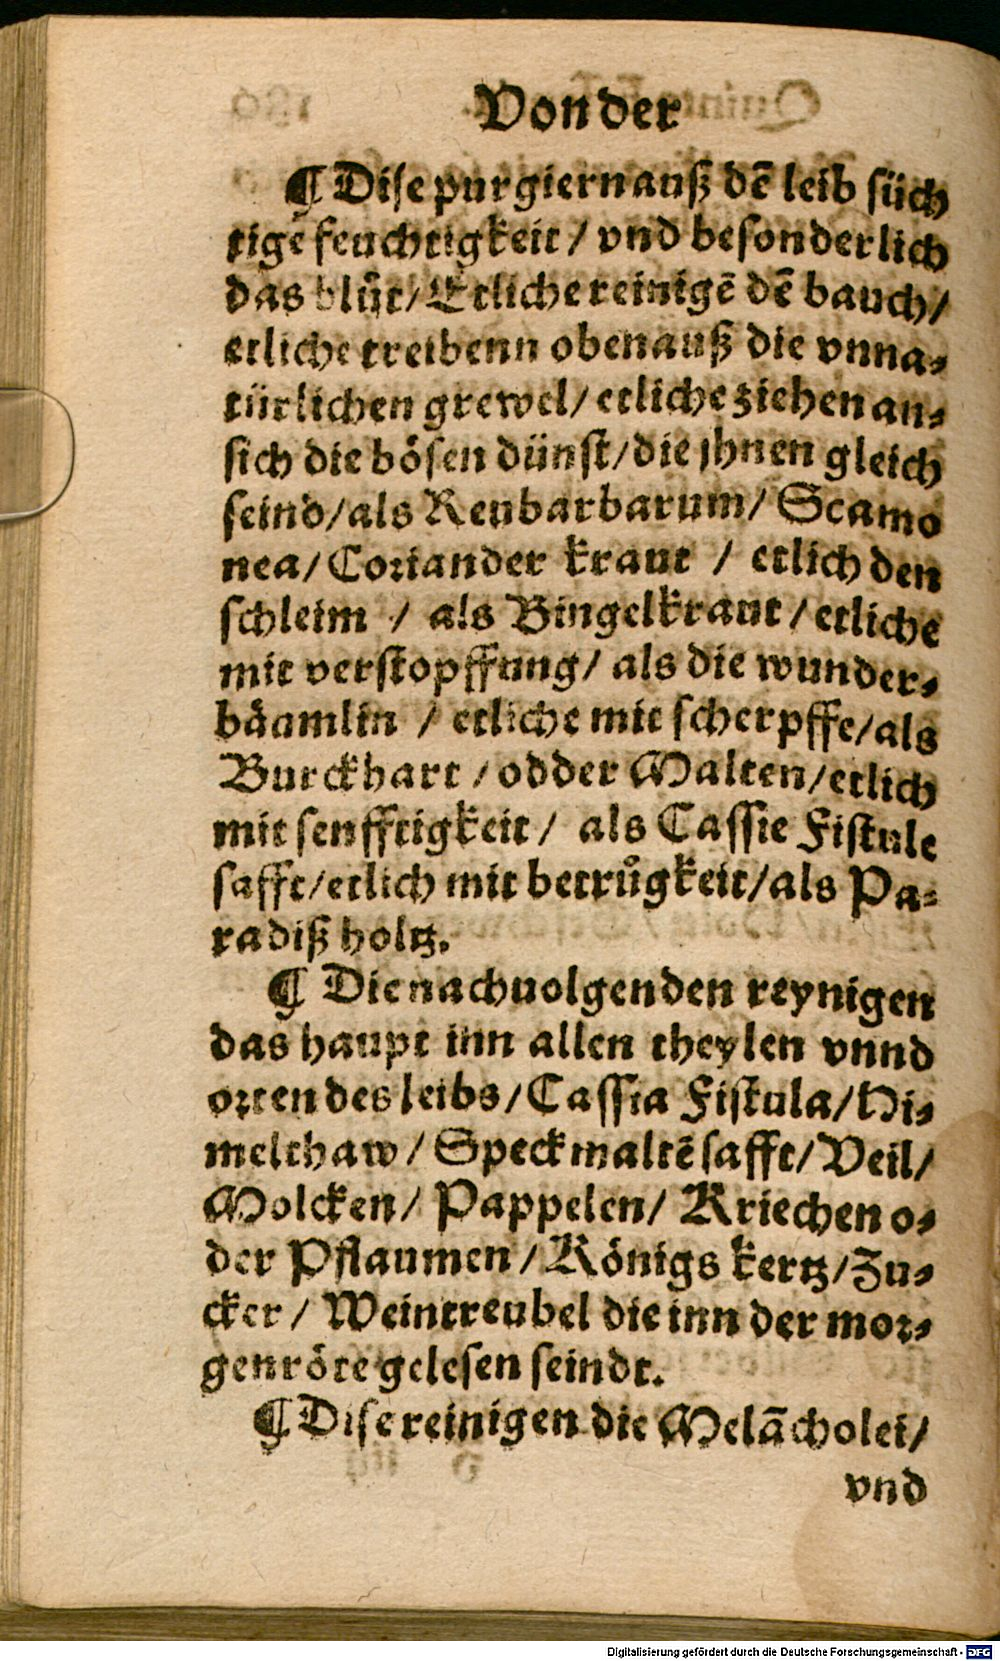 Von der
¶ Dise purgiern auß dē leib süch
tigē feuchtigkeit / vnd besonderlich
das blůt / Etliche reinigē dē bauch /
etliche treibenn oben auß die vnna⸗
türlichen grewel / etliche ziehen an⸗
sich die bösen dünst / die jhnen gleich
seind / als Reubarbarum / Scamo
nea / Coriander kraut / etlich den
schleim / als Bingelkraut / etliche
mit verstopffung / als die wunder⸗
bäumlin / etliche mit scherpffe / als
Burckhart / odder Malten / etlich
mit senfftigkeit / als Cassie Fistule
safft / etlich mit betrůgkeit / als Pa⸗
radiß holtz.
¶ Die nachuolgenden reynigen
das haupt inn allen theylen vnnd
orten des leibs / Cassia Fistula / Hi⸗
melthaw / Speckmaltē safft / Veil /
Molcken / Pappelen / Kriechen o⸗
der Pflaumen / Königs kertz / Zu⸗
cker / Weintreubel die inn der mor⸗
genröte gelesen seindt.
¶ Dise reinigen die Melācholei /
vnd
Digitalisierung gefördert durch die Deutsche Forschungsgemeinschaft - DFG